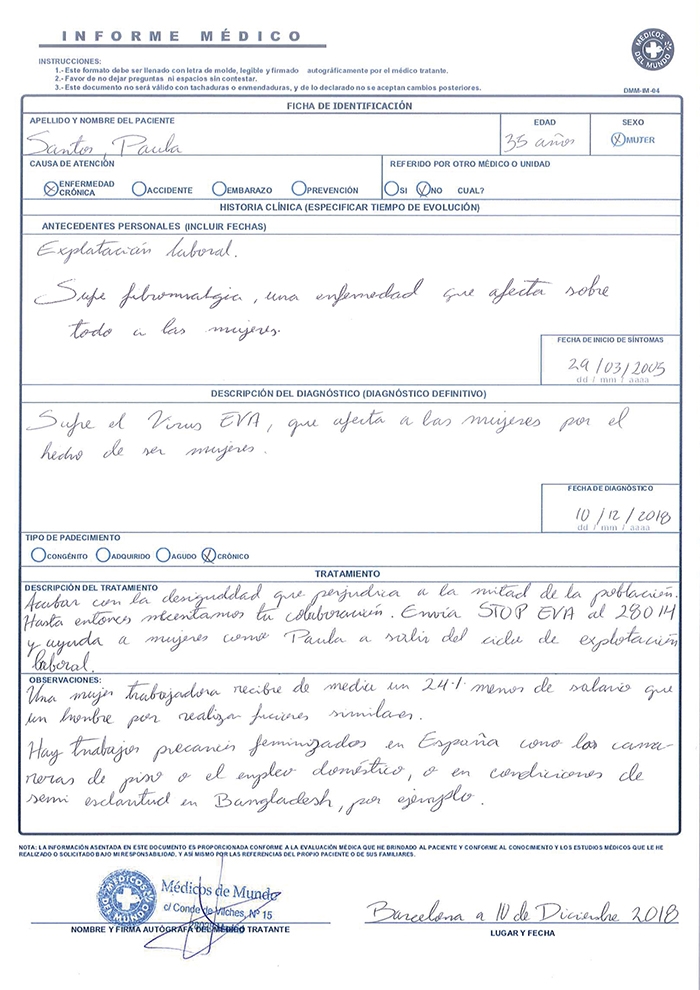 INFORME MÉDICO
MÉDICOS DEL MUNDO
INSTRUCCIONES:
1.- Este formato debe ser llenado con letra de molde, legible y firmado autográficamente por el médico tratante.
2.- Favor de no dejar preguntas ni espacios sin contestar.
3.- Este documento no será válido con tachaduras o enmendaduras, y de lo declarado no se aceptan cambios posteriores.
DMM-IM-04
FICHA DE IDENTIFICACIÓN
APELLIDO Y NOMBRE DEL PACIENTE EDAD SEXO
Santos, Paula 35 años MUJER
CAUSA DE ATENCIÓN REFERIDO POR OTRO MÉDICO O UNIDAD
ENFERMEDAD CRÓNICA ACCIDENTE EMBARAZO PREVENCIÓN SI NO CUAL?
HISTORIA CLÍNICA (ESPECIFICAR TIEMPO DE EVOLUCIÓN)
ANTECEDENTES PERSONALES (INCLUIR FECHAS)
Explotación laboral.
Sufre fibromialgia, una enfermedad que afecta sobre
todo a las mujeres.
FECHA DE INICIO DE SÍNTOMAS
29/03/2005
dd / mm / aaaa
DESCRIPCIÓN DEL DIAGNÓSTICO (DIAGNÓSTICO DEFINITIVO)
Sufre el Virus EVA, que afecta a las mujeres por el
hecho de ser mujeres.
FECHA DE DIAGNÓSTICO
10/12/2018
dd / mm / aaaa
TIPO DE PADECIMIENTO
CONGÉNITO ADQUIRIDO AGUDO CRÓNICO
TRATAMIENTO
DESCRIPCIÓN DEL TRATAMIENTO
Acabar con la desigualdad que perjudica a la mitad de la población.
Hasta entonces necesitamos tu colaboración. Envía STOP EVA al 28014
y ayuda a mujeres como Paula a salir del ciclo de explotación
laboral.
OBSERVACIONES:
Una mujer trabajadora recibe de media un 24% menos de salario que
un hombre por realizar funciones similares.
Hay trabajos precarios feminizados en España como las cama-
reras de piso o el empleo doméstico, o en condiciones de
semi esclavitud en Bangladesh, por ejemplo.
NOTA: LA INFORMACIÓN ASENTADA EN ESTE DOCUMENTO ES PROPORCIONADA CONFORME A LA EVALUACIÓN MÉDICA QUE HE BRINDADO AL PACIENTE Y CONFORME AL CONOCIMIENTO Y LOS ESTUDIOS MÉDICOS QUE LE HE
REALIZADO O SOLICITADO BAJO MI RESPONSABILIDAD, Y ASÍ MISMO POR LAS REFERENCIAS DEL PROPIO PACIENTE O DE SUS FAMILIARES.
MÉDICOS DEL MUNDO
Médicos de Mundo
c/ Conde de Vilches, Nº 15
Barcelona a 10 de Diciembre 2018
NOMBRE Y FIRMA AUTÓGRAFA DEL MÉDICO TRATANTE LUGAR Y FECHA